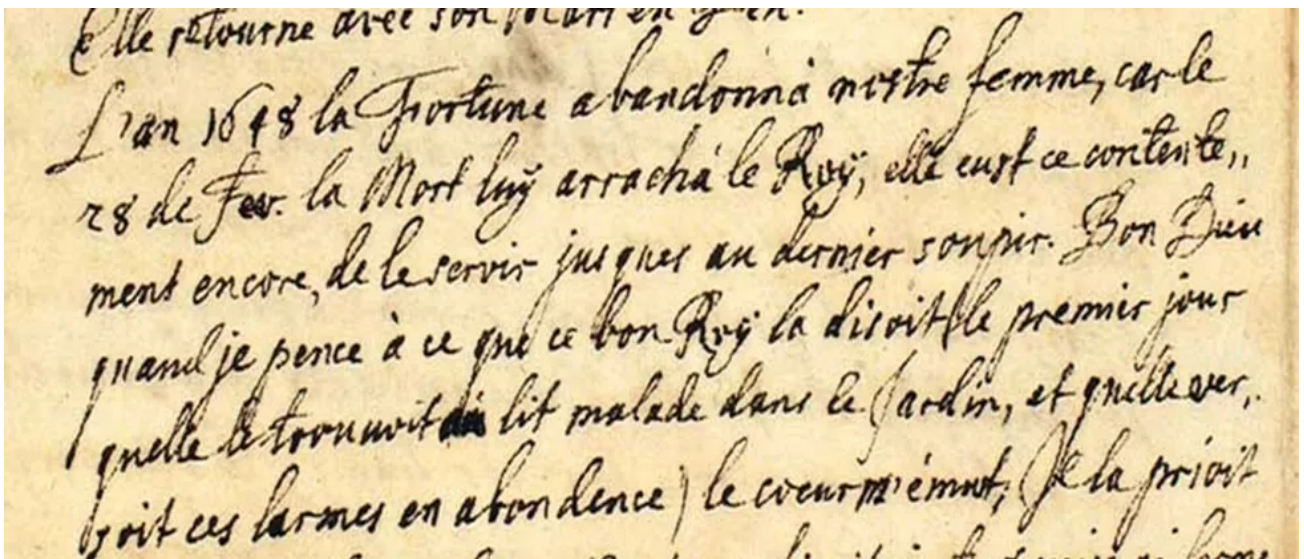 elle retourne avec son Mari en
L'an 1648 la Fortune abandonná nostre femme, car le
28 de Fev. la Mort luÿ arrachá le Roÿ, elle eust ce contente,,
ment encore, de le servir jusques au dernier soupir. Bon Dieu
quand je pence à ce que ce bon Roÿ la disoit (le premier jour
quelle le trouuoit au lit malade dans le Jardin, et quelle ver,,
soit ces larmes en abondence) le coeur m'émut, Je la prioit